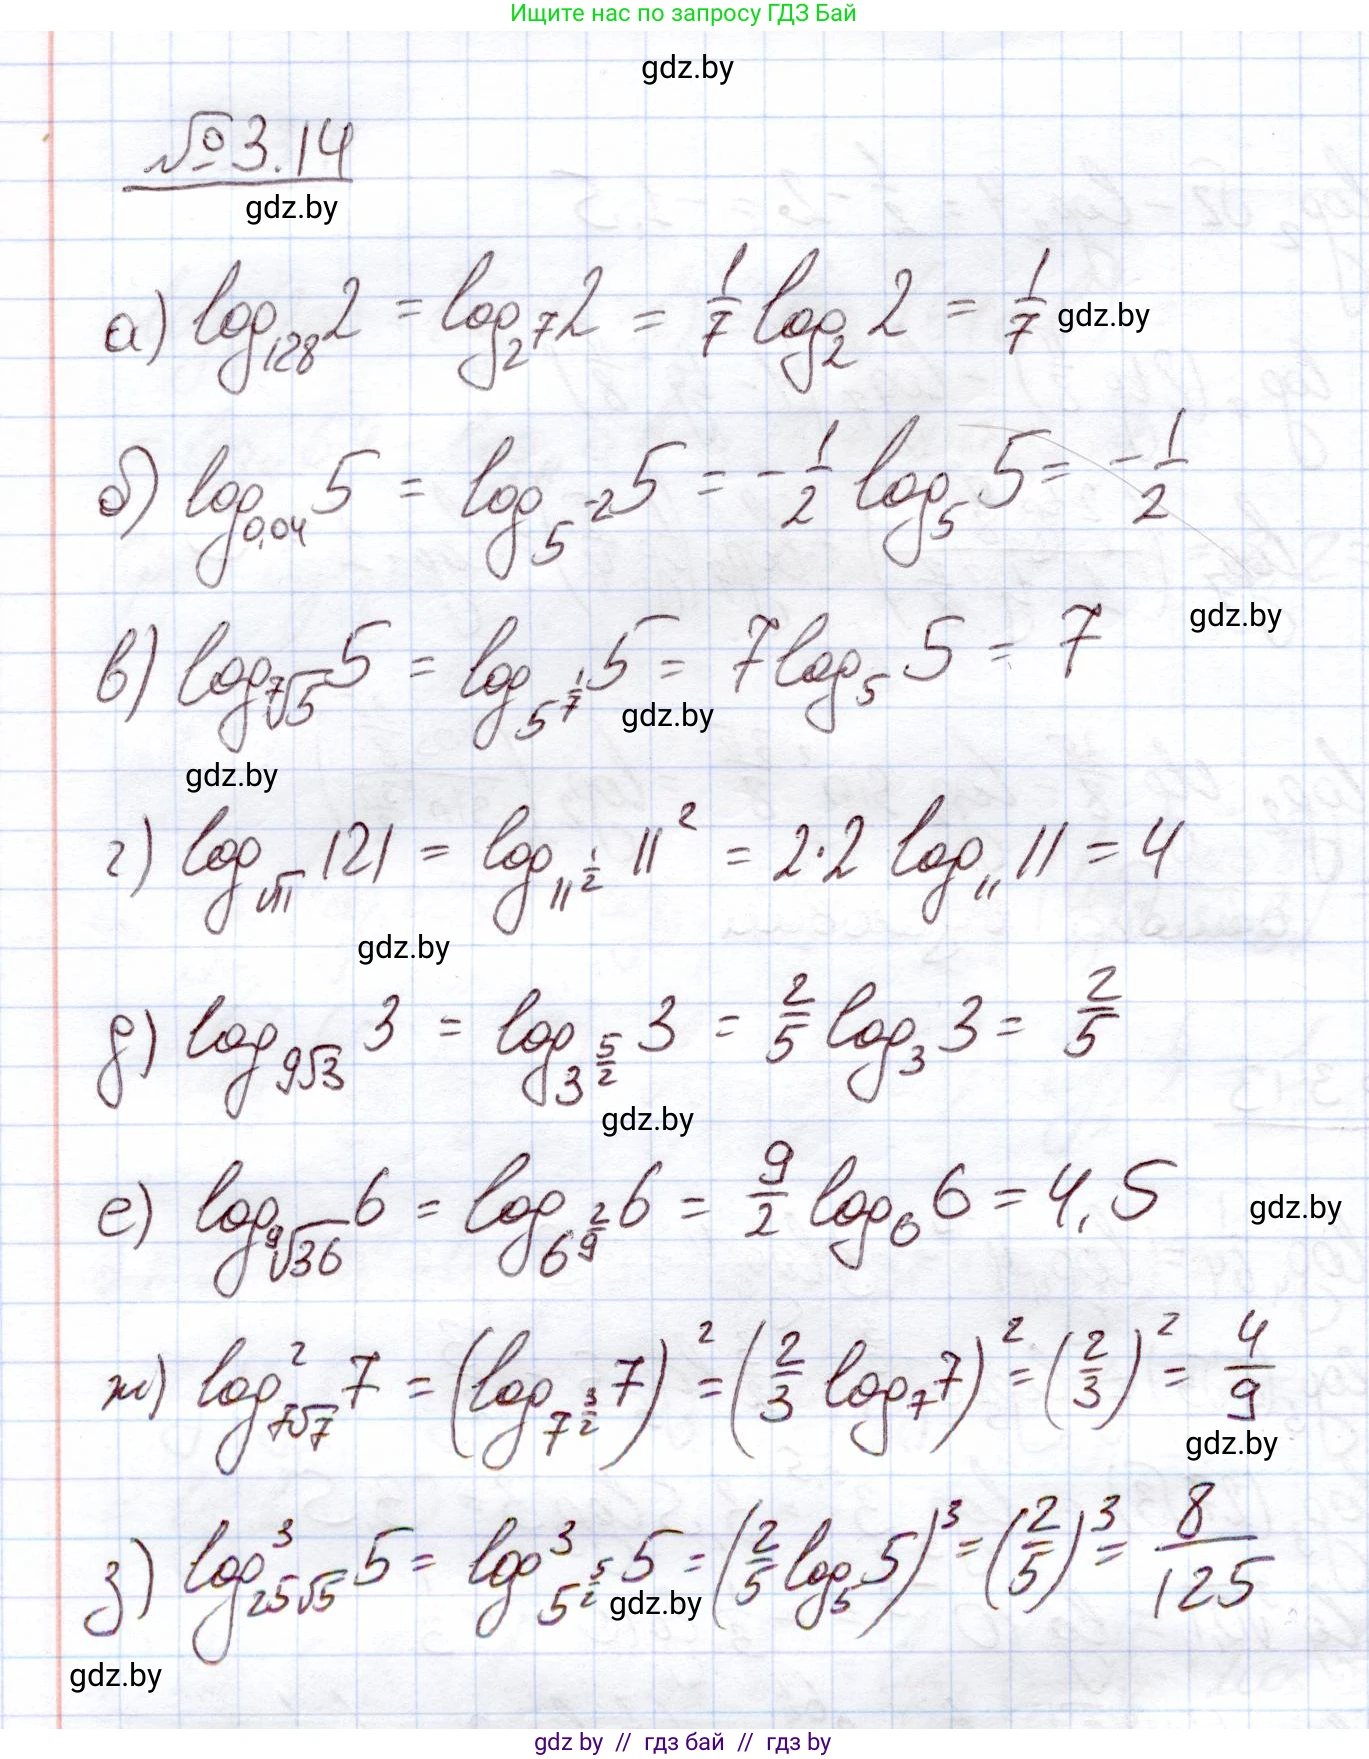 Ищите нас по запросу ГДЗ Бай
gdz.by
№3.14
gdz.by
а) log₁₂₈ 2 = log_{2^7} 2 = 1/7 log₂ 2 = 1/7 gdz.by
б) log_{0,04} 5 = log_{5^{-2}} 5 = -1/2 log₅ 5 = -1/2
gdz.by
в) log_{⁷√5} 5 = log_{5^{1/7}} 5 = 7 log₅ 5 = 7
gdz.by
gdz.by
г) log_{√11} 121 = log_{11^{1/2}} 11² = 2·2 log₁₁ 11 = 4
gdz.by
д) log_{9√3} 3 = log_{3^{5/2}} 3 = 2/5 log₃ 3 = 2/5
gdz.by
е) log_{⁹√36} 6 = log_{6^{2/9}} 6 = 9/2 log₆ 6 = 4,5
gdz.by
ж) log²_{7√7} 7 = (log_{7^{3/2}} 7)² = (2/3 log₇ 7)² = (2/3)² = 4/9
gdz.by
з) log³_{25√5} 5 = log³_{5^{5/2}} 5 = (2/5 log₅ 5)³ = (2/5)³ = 8/125
gdz.by
gdz.by
gdz by // гдз бай // гдз by